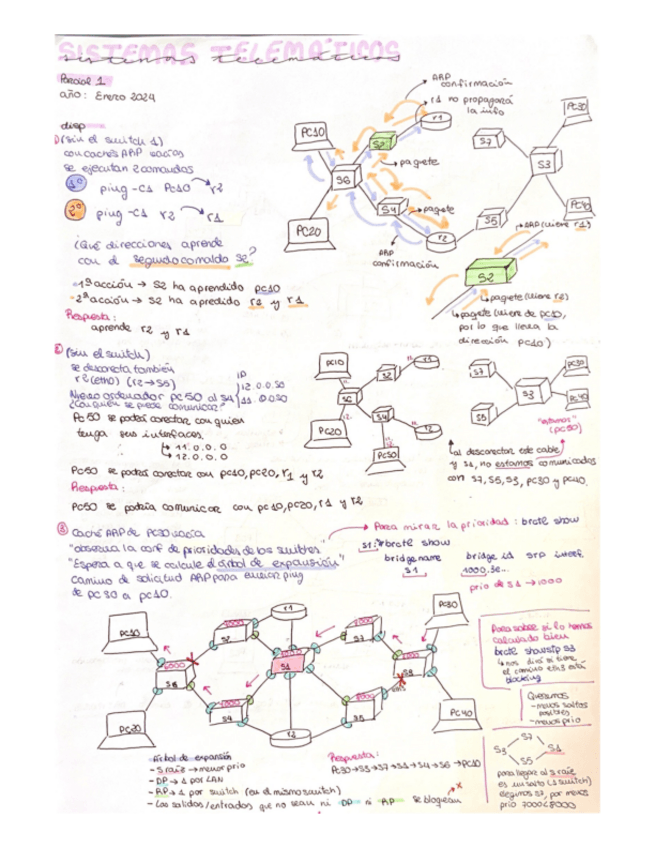 SISTEMAS TELEMÁTICOS
sistemas telemáticos
Parcial 1
año: Enero 2024
disp
1) (sin el switch 1)
con cachés ARP vacías
se ejecutan 2 comandos
1º ping -c1 PC10 → r2
2º ping -c1 r2 → r1
¿Qué direcciones aprende
con el segundo comando S2?
-1ª acción → S2 ha aprendido PC10
-2ª acción → S2 ha apredido r2 y r1
Respuesta:
aprende r2 y r1
ARP
confirmación
r1 no propagará
la info
PC10
S2
r1
→ paquete
S6
S4
→ paquete
PC20
r2
ARP
confirmación
PC30
S7
S3
S5
PC40
→ ARP (viene r1)
S2
→ paquete (viene r2)
→ paquete (viene de PC10,
por lo que lleva la
dirección PC10)
2) (sin el switch)
se desconecta también
r2(eth0) (r2→S5)
Nuevo ordenador PC50 al S4
¿Con quien se puede comunicar?
IP
12.0.0.50
11.0.0.50
PC50 se podrá conectar con quien
tenga sus interfaces.
→ 11.0.0.0
→ 12.0.0.0
PC50 se podrá conectar con PC10, PC20, r1 y r2
Respuesta:
PC50 se podría comunicar con PC10, PC20, r1 y r2
PC10
S2
r1
S6
S4
PC20
r2
PC50
S7
PC30
S3
PC40
S5
"estamos"
(PC50)
al desconectar este cable
y S1, no estamos comunicados
con S7, S5, S3, PC30 y PC40.
3) Caché ARP de PC30 vacía
"observa la conf de prioridades de los switches"
"Espera a que se calcule el árbol de expansión"
Camino de solicitud ARP para enviar ping
de PC30 a PC10.
→ Para mirar la prioridad: brctl show
S1:# brctl show
bridge name bridge id stp interf.
S1 1000.3e...
prio de S1 → 1000
PC10
S2
r1
S7
PC30
S6
S1
S3
S4
S5
PC20
r2
PC40
Para saber si lo hemos
calculado bien
brctl showstp S3
→ nos dirá si tiene
el camino eth3 está
blocking
Queremos
- menos saltos
posibles
- menos prio
S7
S3 S1
S5
para llegar al S raíz
es un salto (1 switch)
elegimos S7, por menos
prio 7000<8000
Árbol de expansión
- S raíz → menor prio
- DP → 1 por LAN
- RP → 1 por switch (en el mismo switch)
- Las salidas/entradas que no sean ni DP ni RP se bloquean
Respuesta:
PC30→S3→S7→S1→S4→S6→PC10